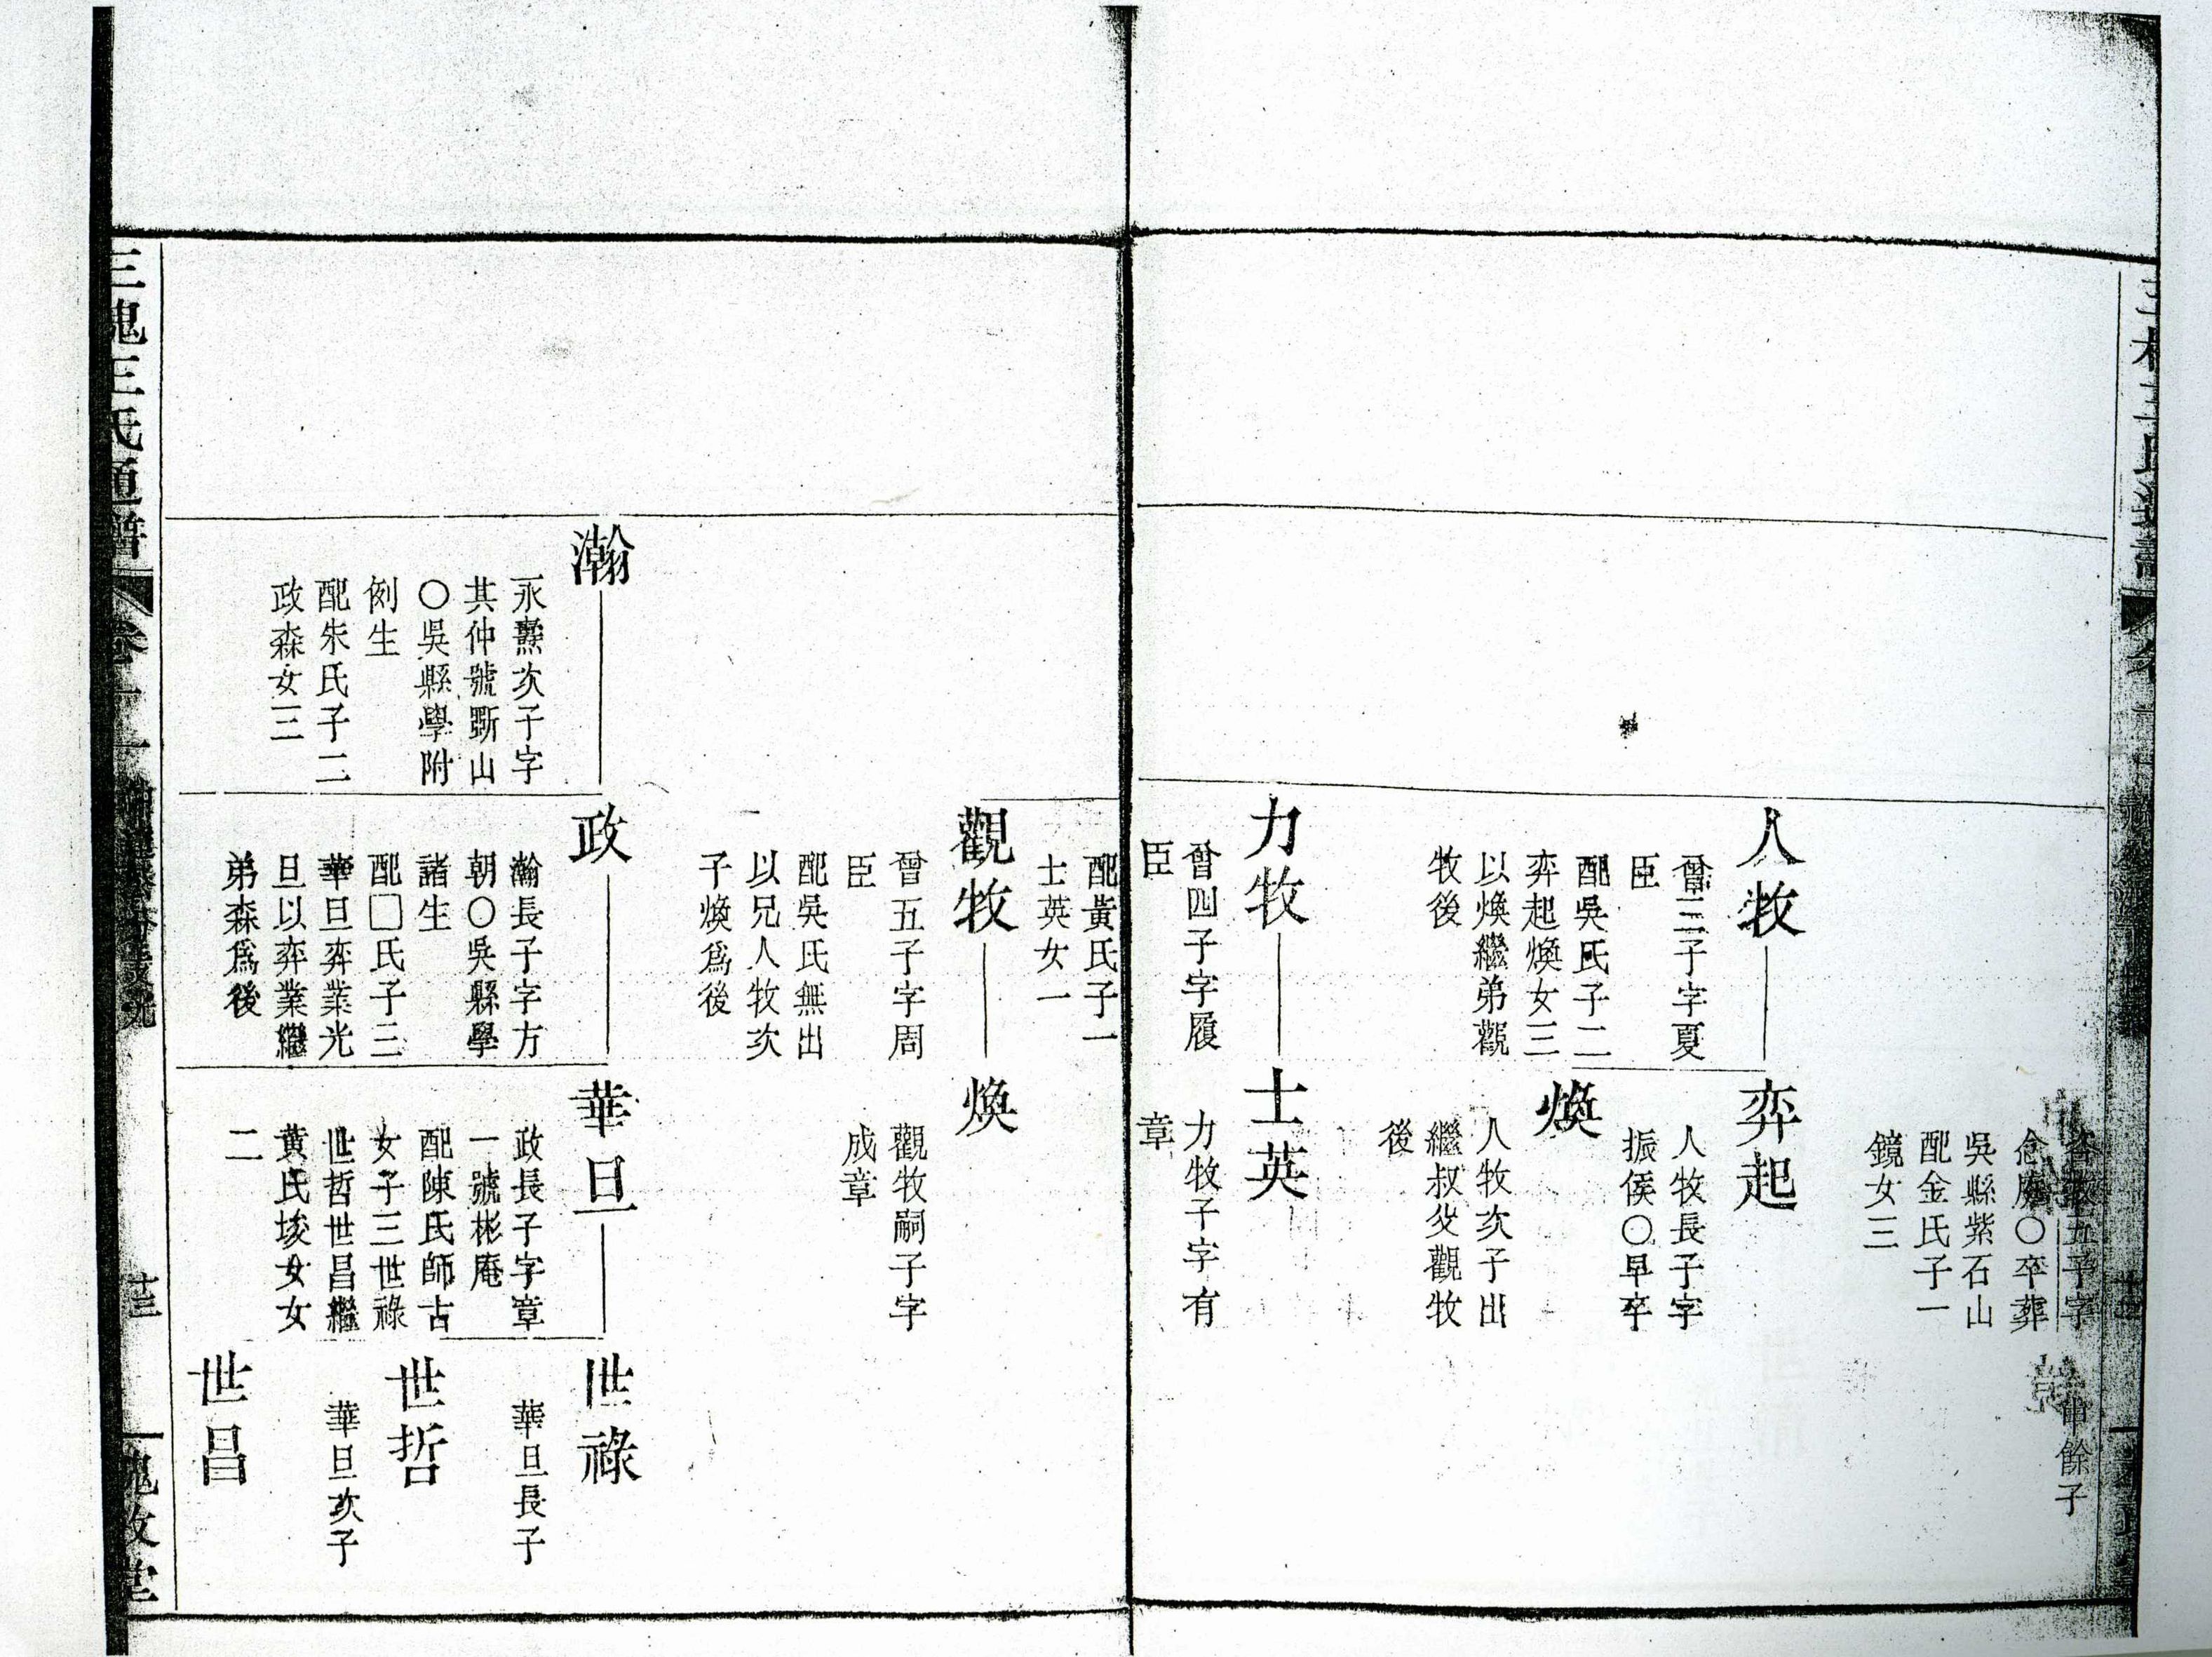 五子字
念康〇卒葬
吳縣紫石山
配金氏子一
鏡女三
餘子
人牧
曾三子字夏
臣
配吳氏子二
弈起煥女三
以煥繼弟觀
牧後
弈起
人牧長子字
振侯〇早卒
煥
人牧次子出
繼叔父觀牧
後
力牧
曾四子字履
臣
配黃氏子一
士英女一
士英
力牧子字有
章
觀牧
曾五子字周
臣
配吳氏無出
以兄人牧次
子煥爲後
煥
觀牧嗣子字
成章
瀚
永燾次子字
其仲號斲山
〇吳縣學附
例生
配朱氏子二
政森女三
政
瀚長子字方
朝〇吳縣學
諸生
配□氏子三
華旦弈業光
旦以弈業繼
弟森爲後
華旦
政長子字章
一號彬庵
配陳氏師古
女子三世祿
世哲世昌繼
黃氏埈女女
二
世祿
華旦長子
世哲
華旦次子
世昌
三槐王氏通譜
卷十一
十三
槐政堂